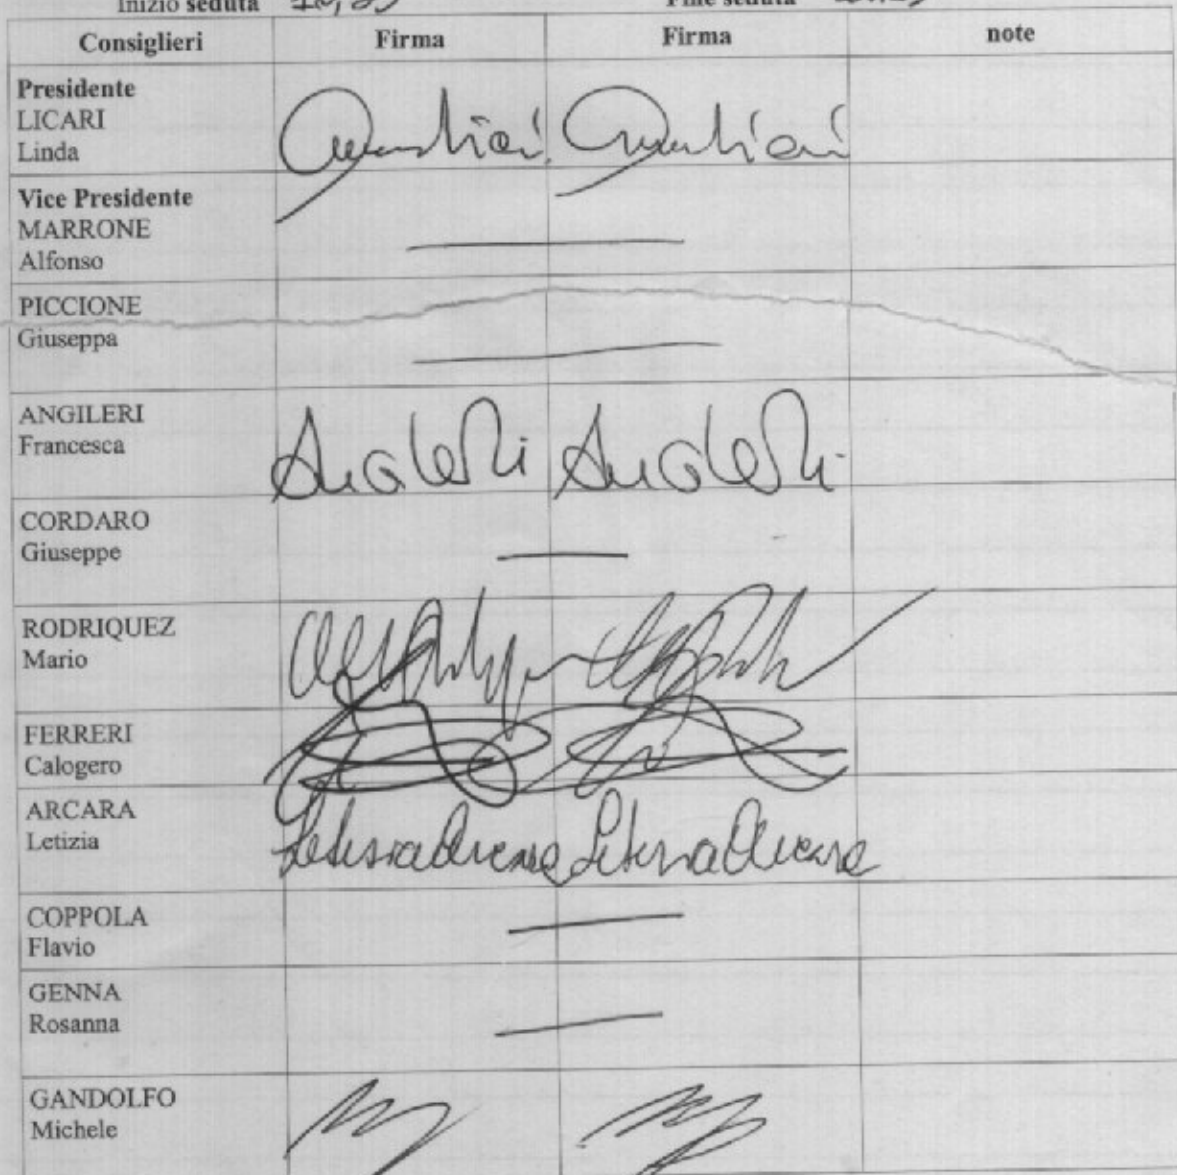 Inizio seduta Fine seduta
Consiglieri Firma Firma note
Presidente
LICARI
Linda
Vice Presidente
MARRONE
Alfonso
PICCIONE
Giuseppa
ANGILERI
Francesca
Angileri Angileri
CORDARO
Giuseppe
RODRIQUEZ
Mario
FERRERI
Calogero
ARCARA
Letizia
Letizia Arcara Letizia Arcara
COPPOLA
Flavio
GENNA
Rosanna
GANDOLFO
Michele